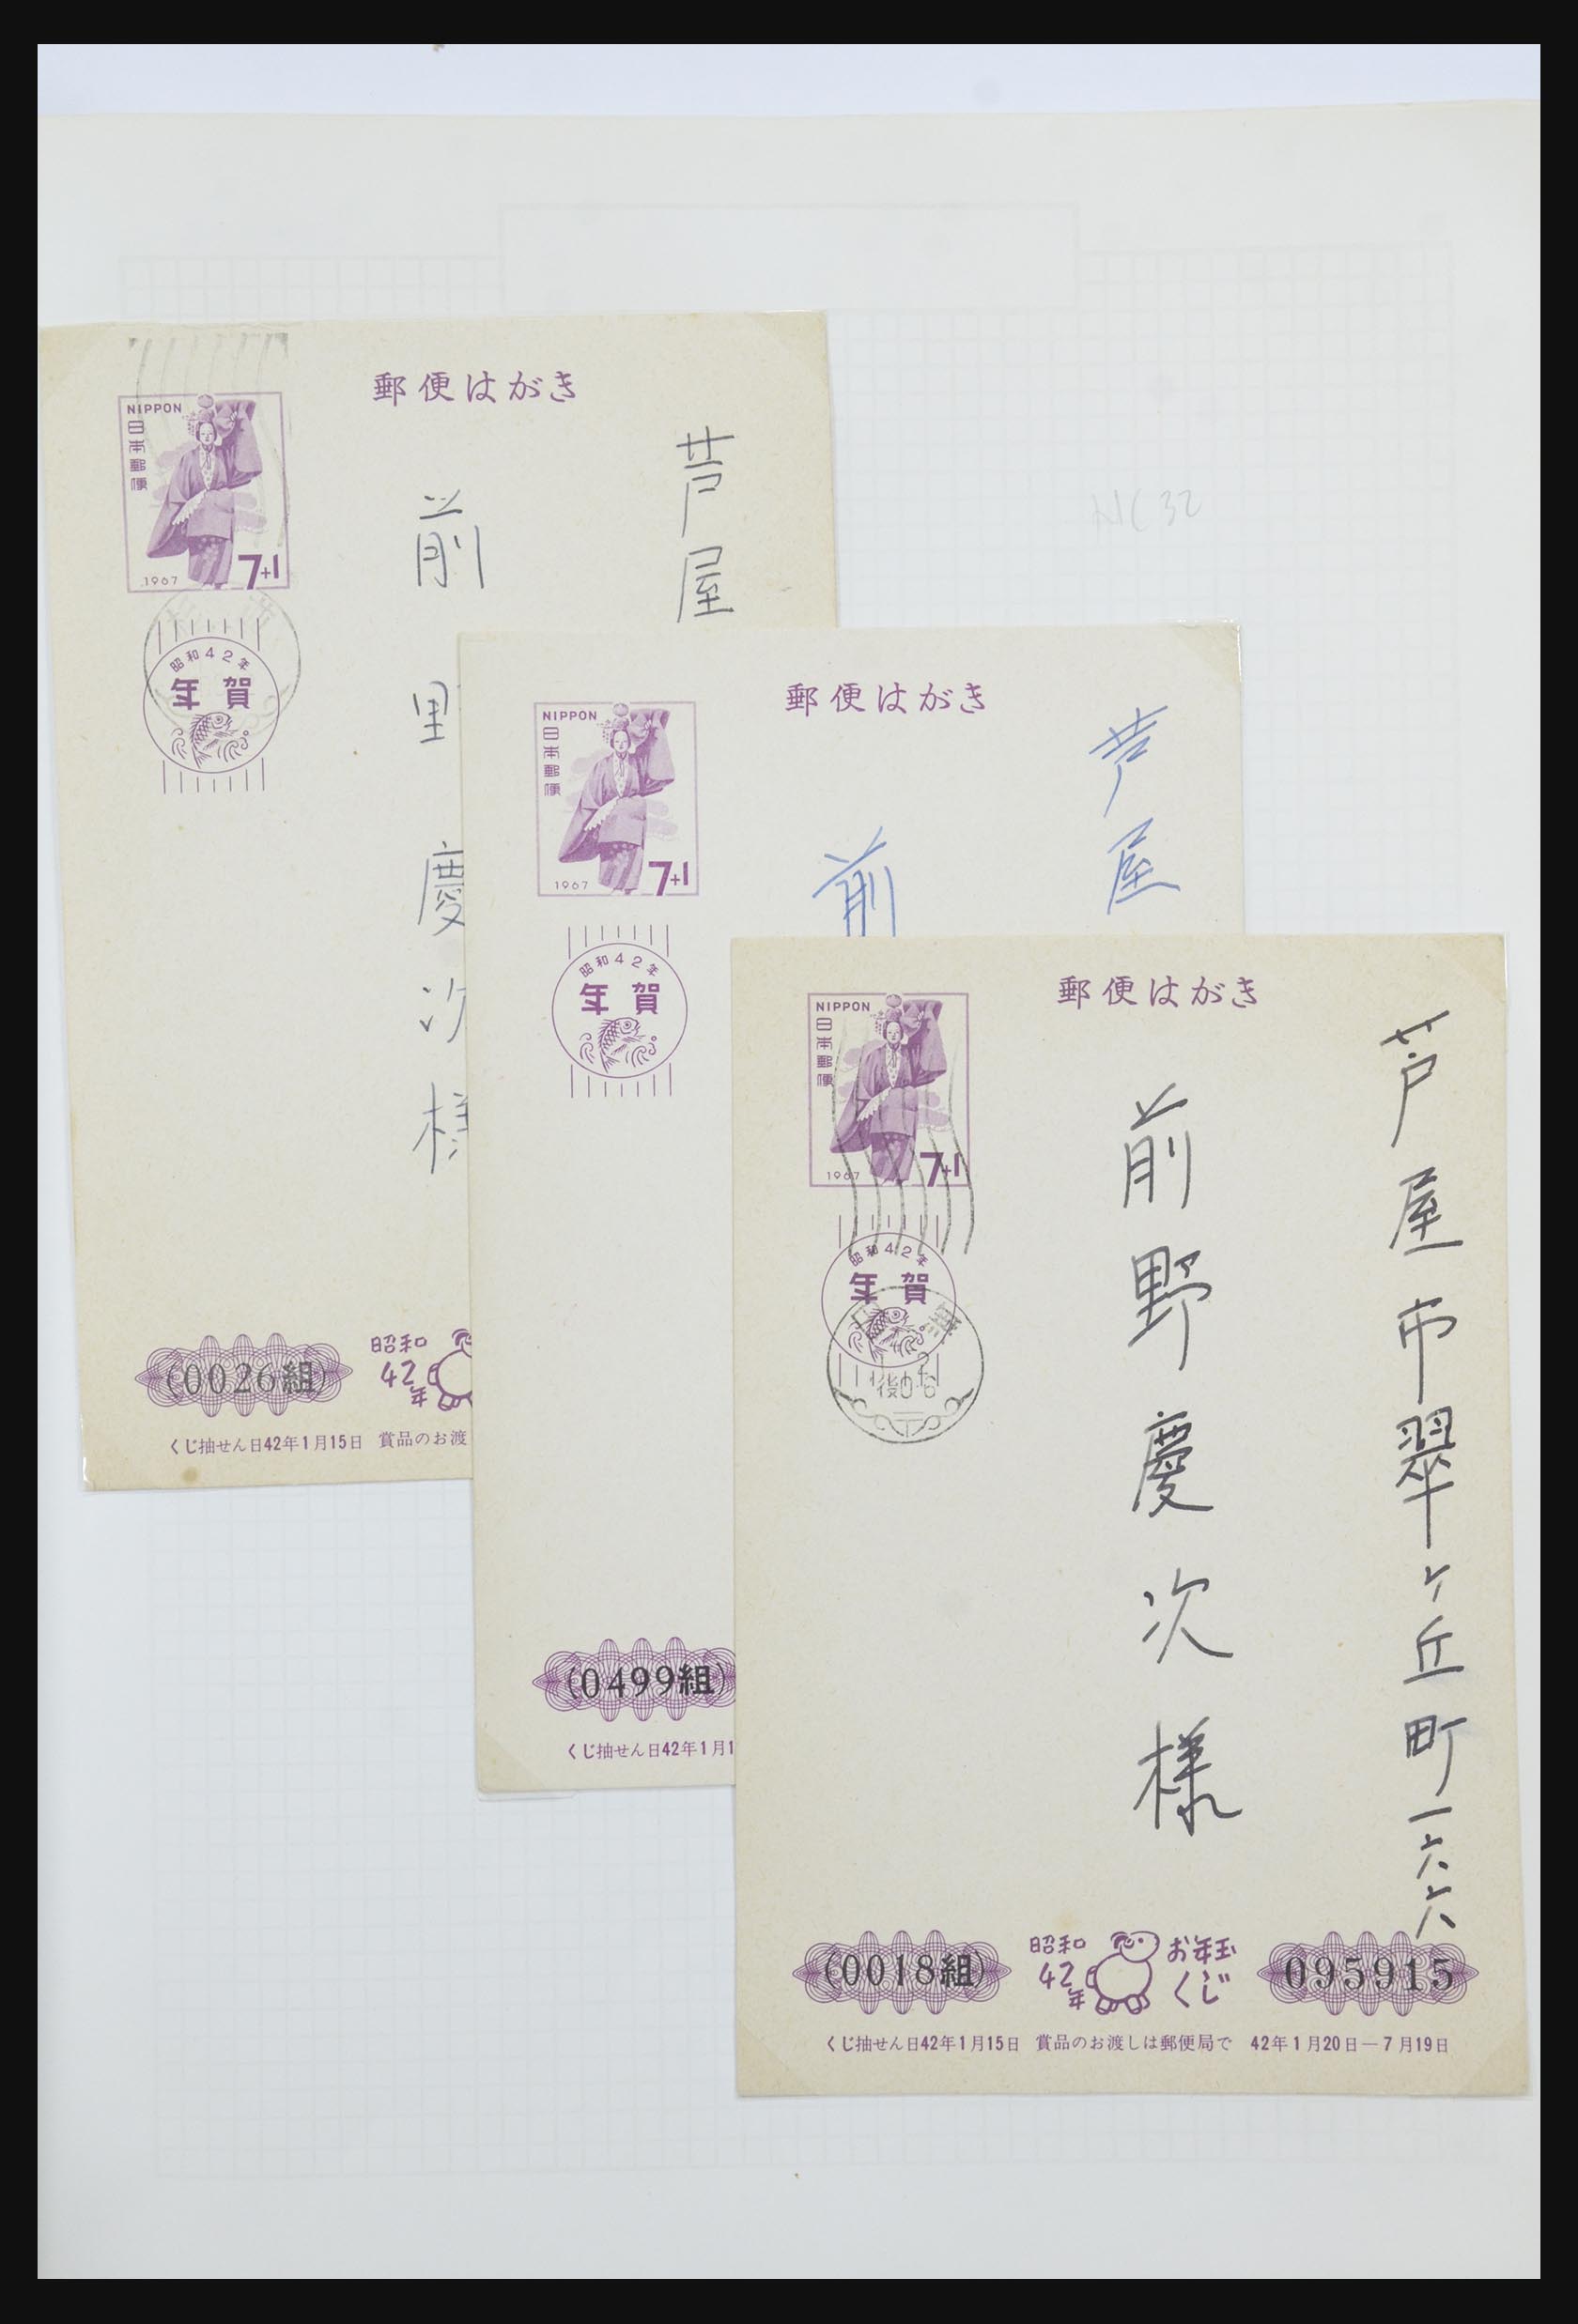 郵便はがき
NIPPON
日本郵便
1967
7+1
昭和42年
年賀
芦屋
前野慶次様
(0026組)
昭和
42
年
くじ抽せん日42年1月15日 賞品のお渡
NC32
郵便はがき
NIPPON
日本郵便
1967
7+1
昭和42年
年賀
芦屋
前
(0499組)
くじ抽せん日42年1月1
郵便はがき
NIPPON
日本郵便
1967
7+1
昭和42年
年賀
後0-6
芦屋市翠ヶ丘町一六六
前野慶次様
(0018組)
昭和
42
年
お年玉
くじ
095915
くじ抽せん日42年1月15日 賞品のお渡しは郵便局で 42年1月20日—7月19日